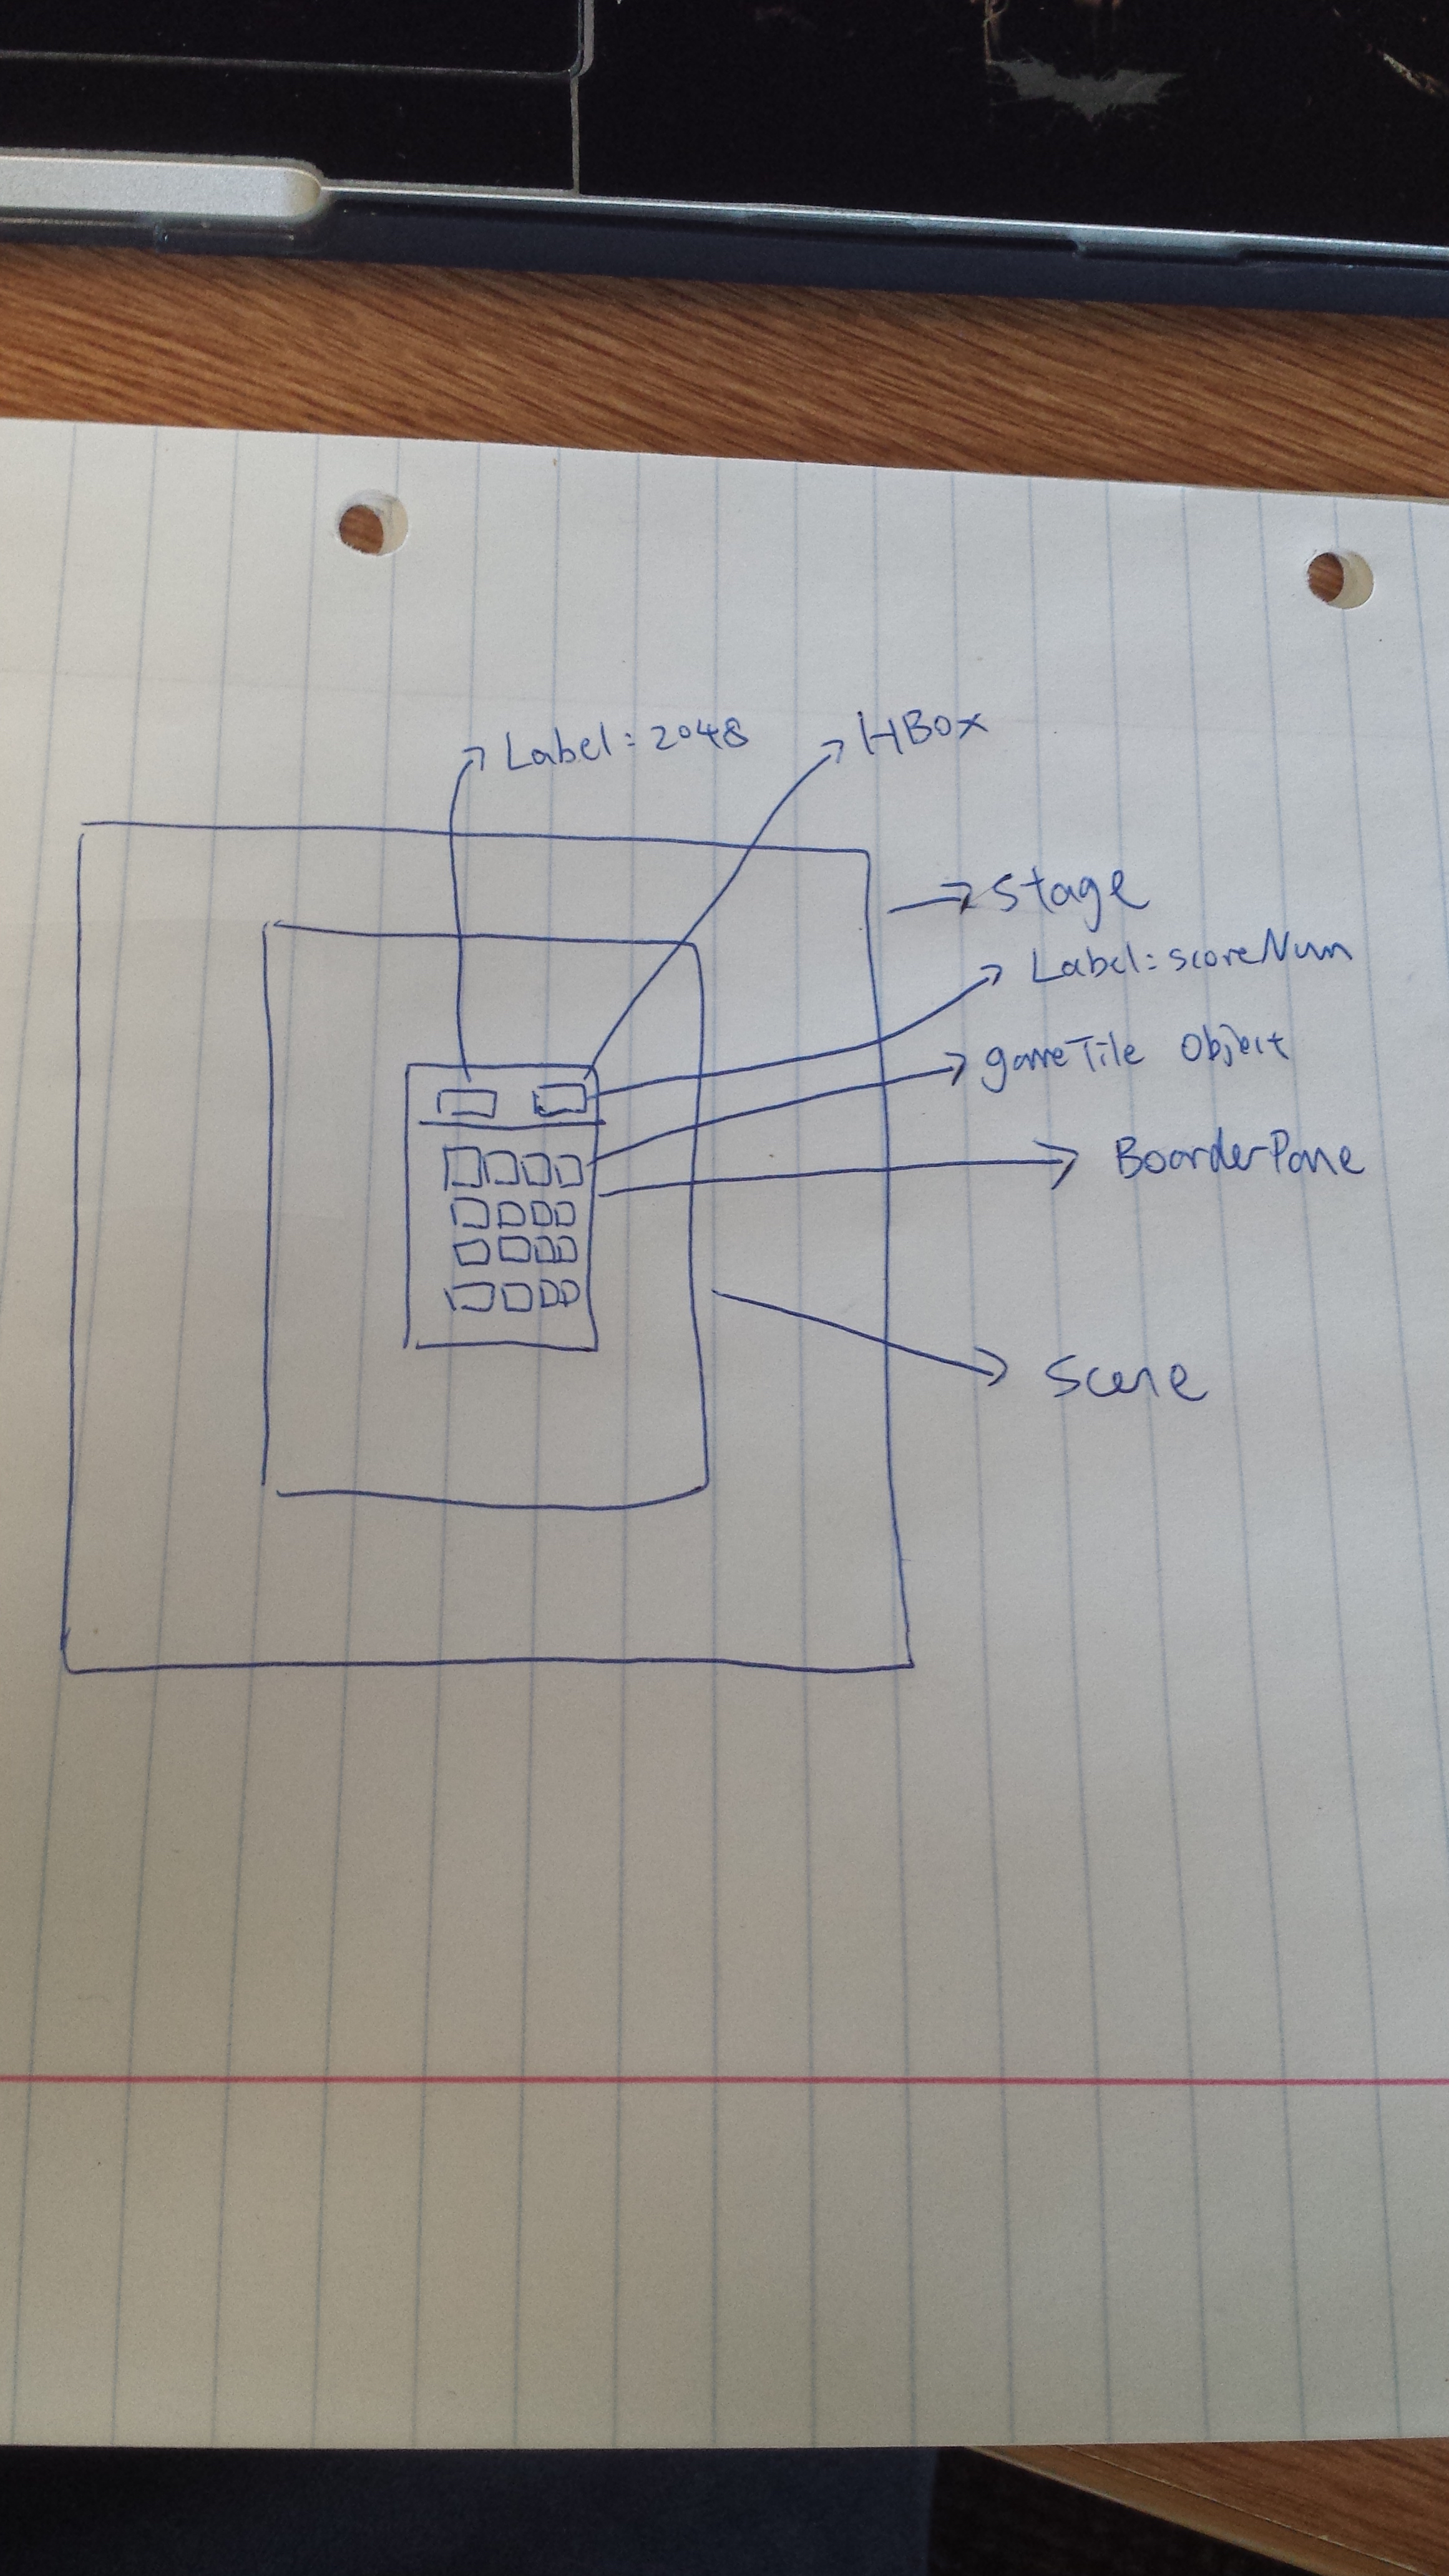 Label: 2048
HBox
Stage
Label: scoreNum
gameTile Object
BoarderPane
Scene